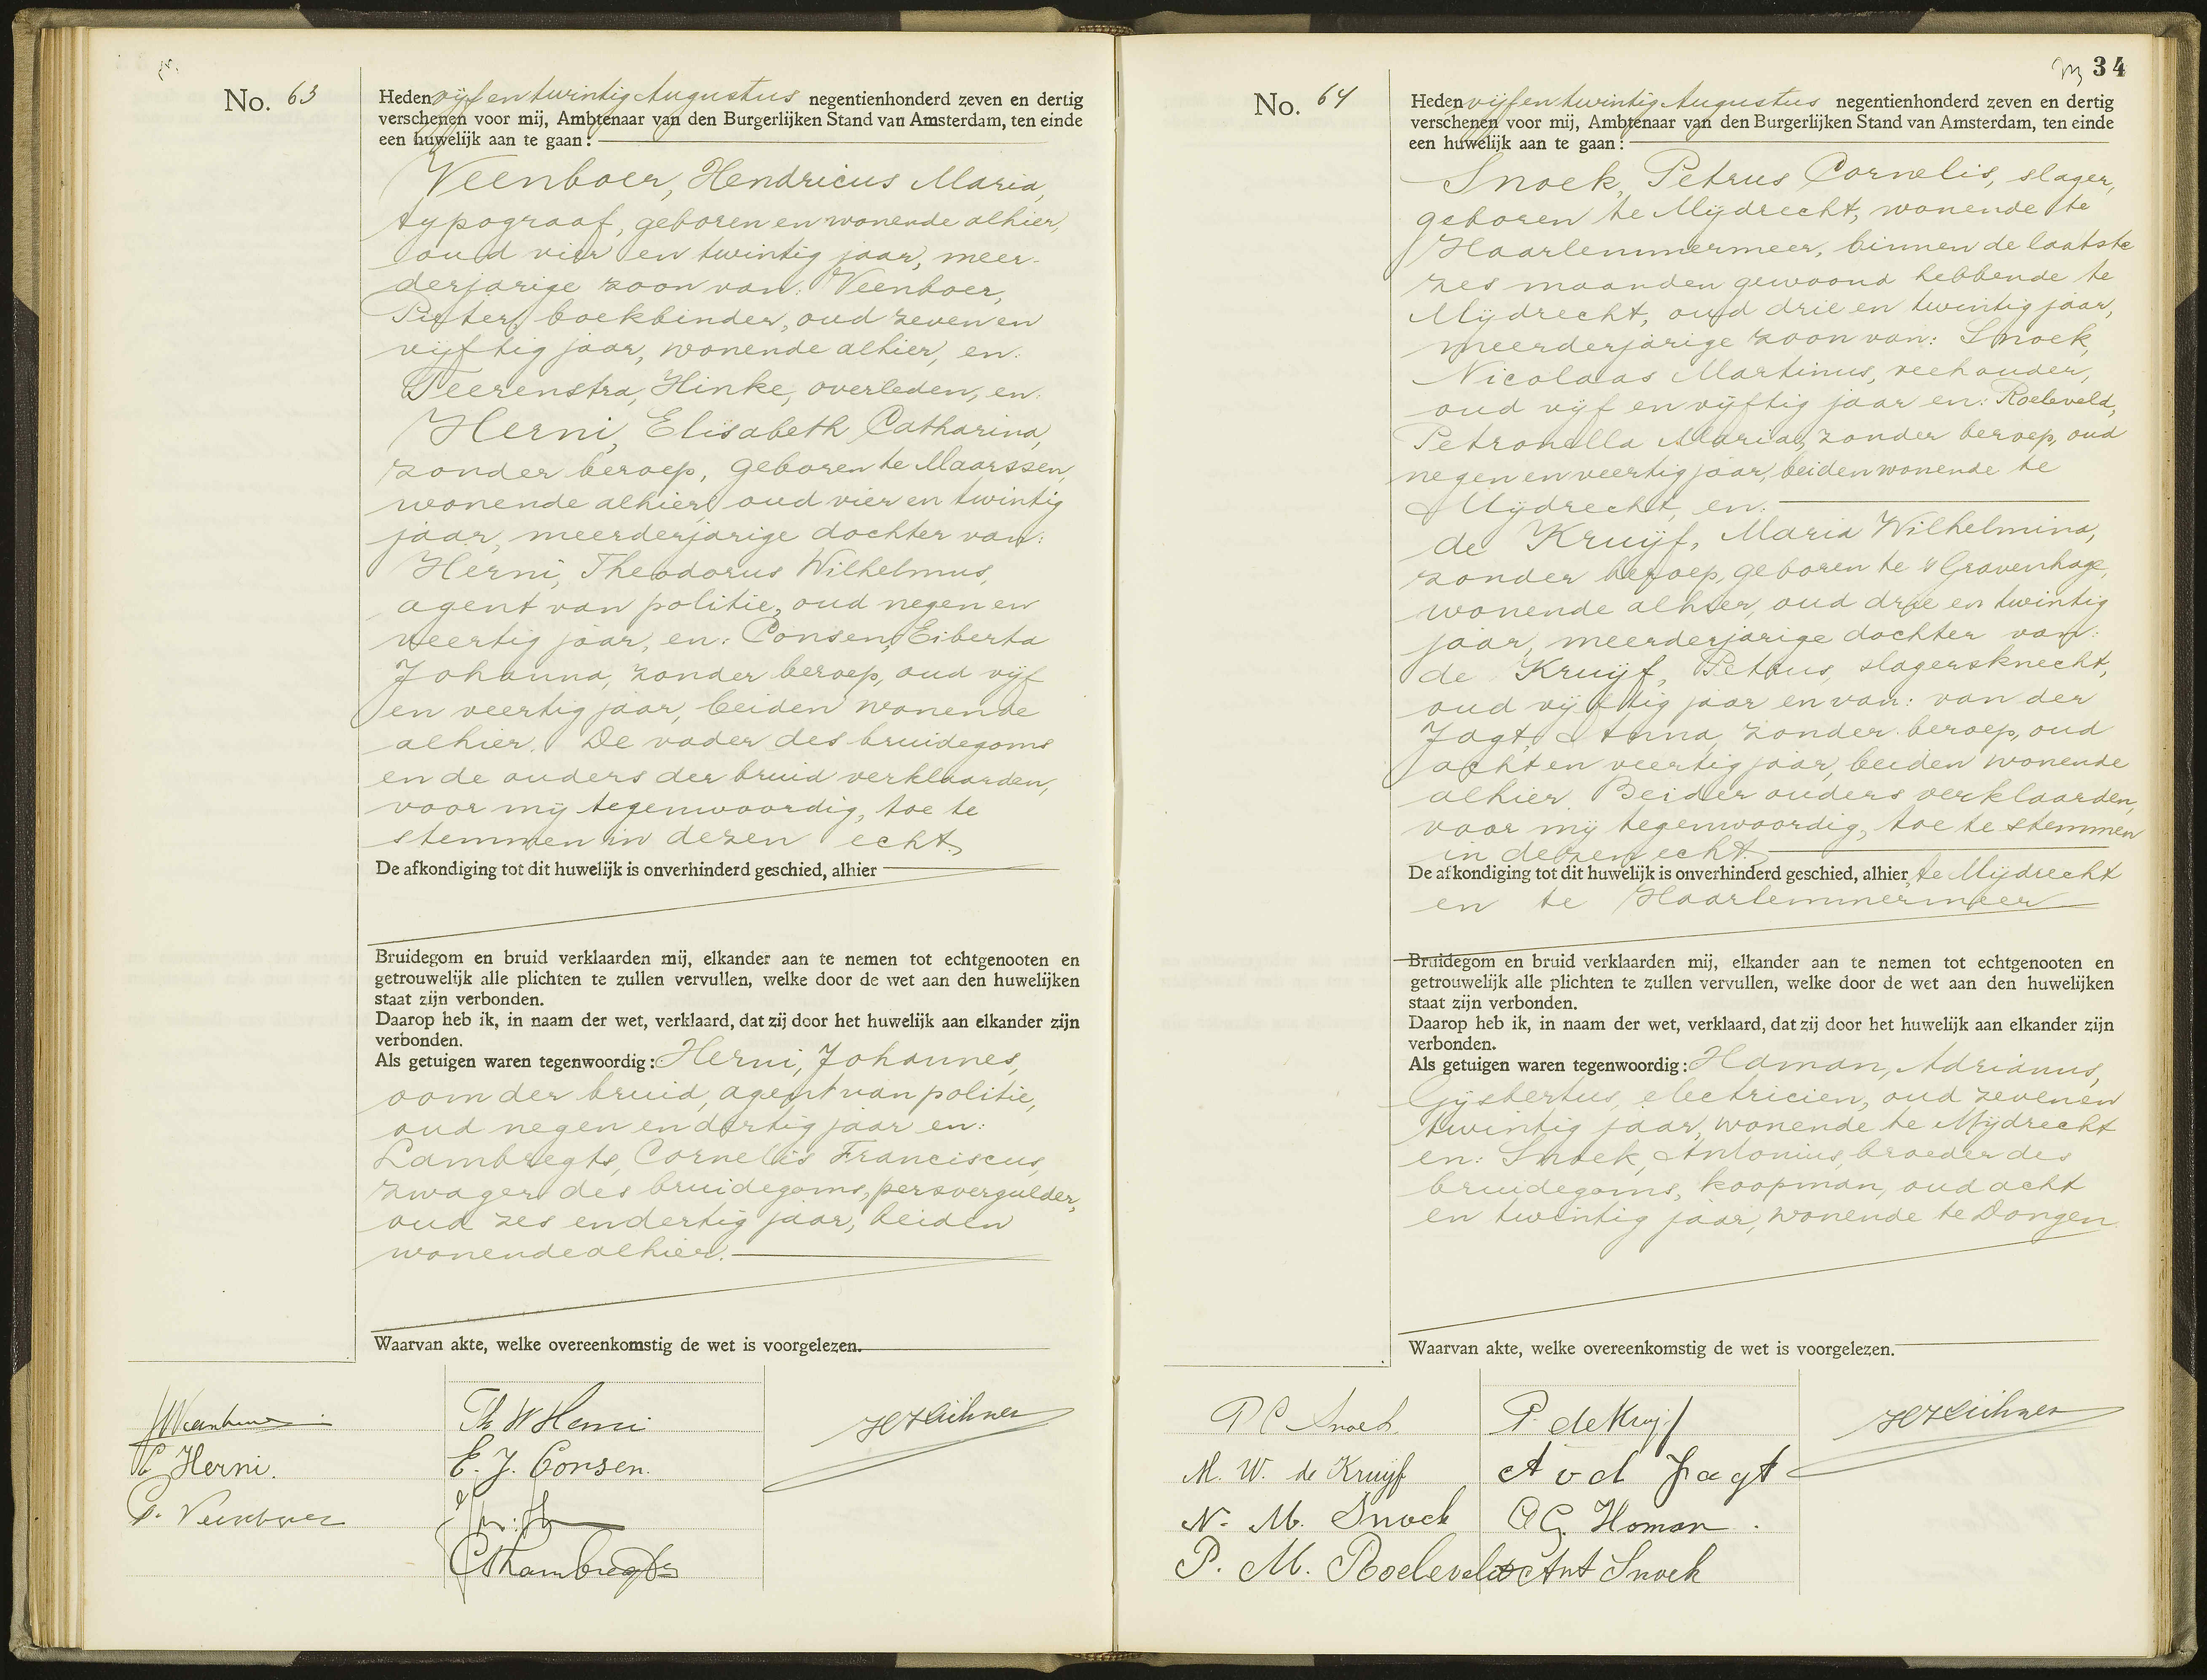 No. 63
Heden vijf en twintig Augustus negentienhonderd zeven en dertig
verschenen voor mij, Ambtenaar van den Burgerlijken Stand van Amsterdam, ten einde
een huwelijk aan te gaan:
Veenboer, Hendricus Maria,
typograaf, geboren en wonende alhier,
oud vier en twintig jaar, meer-
derjarige zoon van: Veenboer,
Pieter, boekbinder, oud zeven en
vijftig jaar, wonende alhier, en:
Teerenstra, Hinke, overleden, en:
Herni, Elisabeth Catharina,
zonder beroep, geboren te Maarssen,
wonende alhier, oud vier en twintig
jaar, meerderjarige dochter van:
Herni, Theodorus Wilhelmus,
agent van politie, oud negen en
veertig jaar, en: Consen, Eiberta
Johanna, zonder beroep, oud vijf
en veertig jaar, beiden wonende
alhier. De vader des bruidegoms
en de ouders der bruid verklaarden,
voor mij tegenwoordig, toe te
stemmen in dezen echt.
De afkondiging tot dit huwelijk is onverhinderd geschied, alhier
Bruidegom en bruid verklaarden mij, elkander aan te nemen tot echtgenooten en
getrouwelijk alle plichten te zullen vervullen, welke door de wet aan den huwelijken
staat zijn verbonden.
Daarop heb ik, in naam der wet, verklaard, dat zij door het huwelijk aan elkander zijn
verbonden.
Als getuigen waren tegenwoordig: Herni, Johannes,
oom der bruid, agent van politie,
oud negen en dertig jaar en:
Lambregts, Cornelis Franciscus,
zwager des bruidegoms, persvergulder,
oud zes en dertig jaar, beiden
wonende alhier.
Waarvan akte, welke overeenkomstig de wet is voorgelezen.
Th W Herni
Herni.
E. J. Consen.
P. Veenboer
CF Lambregts
34
No. 64
Heden vijf en twintig Augustus negentienhonderd zeven en dertig
verschenen voor mij, Ambtenaar van den Burgerlijken Stand van Amsterdam, ten einde
een huwelijk aan te gaan:
Snoek, Petrus Cornelis, slager,
geboren te Mijdrecht, wonende te
Haarlemmermeer, binnen de laatste
zes maanden gewoond hebbende te
Mijdrecht, oud drie en twintig jaar,
meerderjarige zoon van: Snoek,
Nicolaas Martinus, veehouder,
oud vijf en vijftig jaar en: Roeleveld,
Petronella Maria, zonder beroep, oud
negen en veertig jaar, beiden wonende te
Mijdrecht, en:
de Kruijf, Maria Wilhelmina,
zonder beroep, geboren te 's Gravenhage,
wonende alhier, oud drie en twintig
jaar, meerderjarige dochter van:
de Kruijf, Petrus, slagersknecht,
oud vijftig jaar en van: van der
Jagt, Anna, zonder beroep, oud
acht en veertig jaar, beiden wonende
alhier. Beider ouders verklaarden,
voor mij tegenwoordig, toe te stemmen
in dezen echt.
De afkondiging tot dit huwelijk is onverhinderd geschied, alhier, te Mijdrecht
en te Haarlemmermeer
Bruidegom en bruid verklaarden mij, elkander aan te nemen tot echtgenooten en
getrouwelijk alle plichten te zullen vervullen, welke door de wet aan den huwelijken
staat zijn verbonden.
Daarop heb ik, in naam der wet, verklaard, dat zij door het huwelijk aan elkander zijn
verbonden.
Als getuigen waren tegenwoordig: Homan, Adrianus,
Gijsbertus, electricien, oud zeven en
twintig jaar, wonende te Mijdrecht
en: Snoek, Antonius, broeder des
bruidegoms, koopman, oud acht
en twintig jaar, wonende te Dongen
Waarvan akte, welke overeenkomstig de wet is voorgelezen.
P C Snoek
P. de Kruijf
M. W. de Kruijf
A v d Jagt
N. M. Snoek
A G. Homan.
P. M. Roeleveld
Ant Snoek